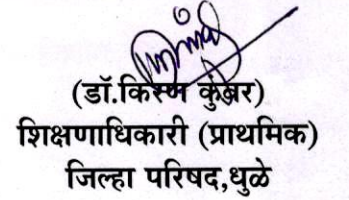 (डॉ.किरण कुंवर)
शिक्षणाधिकारी (प्राथमिक)
जिल्हा परिषद,धुळे